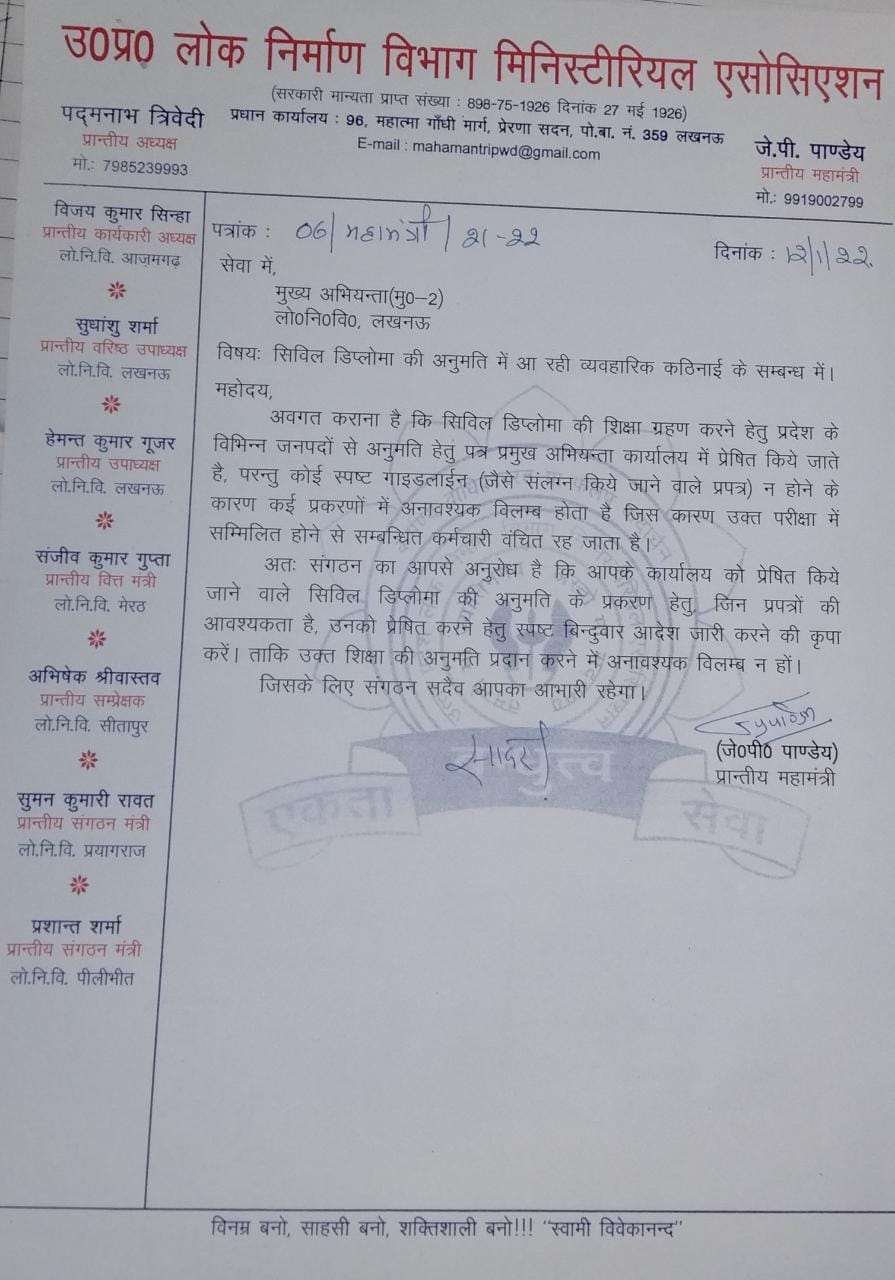 उ0प्र0 लोक निर्माण विभाग मिनिस्टीरियल एसोसिएशन
(सरकारी मान्यता प्राप्त संख्या : 898-75-1926 दिनांक 27 मई 1926)
प्रधान कार्यालय : 96, महात्मा गाँधी मार्ग, प्रेरणा सदन, पो.बा. नं. 359 लखनऊ
E-mail : mahamantripwd@gmail.com
पद्मनाभ त्रिवेदी
प्रान्तीय अध्यक्ष
मो.: 7985239993
जे.पी. पाण्डेय
प्रान्तीय महामंत्री
मो.: 9919002799
विजय कुमार सिन्हा
प्रान्तीय कार्यकारी अध्यक्ष
लो.नि.वि. आज़मगढ़
सुधांशु शर्मा
प्रान्तीय वरिष्ठ उपाध्यक्ष
लो.नि.वि. लखनऊ
हेमन्त कुमार गूजर
प्रान्तीय उपाध्यक्ष
लो.नि.वि. लखनऊ
संजीव कुमार गुप्ता
प्रान्तीय वित्त मंत्री
लो.नि.वि. मेरठ
अभिषेक श्रीवास्तव
प्रान्तीय सम्प्रेक्षक
लो.नि.वि. सीतापुर
सुमन कुमारी रावत
प्रान्तीय संगठन मंत्री
लो.नि.वि. प्रयागराज
प्रशान्त शर्मा
प्रान्तीय संगठन मंत्री
लो.नि.वि. पीलीभीत
पत्रांक : 06/महामंत्री/21-22
दिनांक : 12/1/22.
सेवा में,
मुख्य अभियन्ता(मु0–2)
लो0नि0वि0, लखनऊ
विषयः सिविल डिप्लोमा की अनुमति में आ रही व्यवहारिक कठिनाई के सम्बन्ध में।
महोदय,
अवगत कराना है कि सिविल डिप्लोमा की शिक्षा ग्रहण करने हेतु प्रदेश के
विभिन्न जनपदों से अनुमति हेतुं पत्र प्रमुख अभियन्ता कार्यालय में प्रेषित किये जाते
है, परन्तु कोई स्पष्ट गाइडलाईन (जैसे संलग्न किये जाने वाले प्रपत्र) न होने के
कारण कई प्रकरणों में अनावश्यक विलम्ब होता है जिस कारण उक्त परीक्षा में
सम्मिलित होने से सम्बन्धित कर्मचारी वंचित रह जाता है।
अतः संगठन का आपसे अनुरोध है कि आपके कार्यालय को प्रेषित किये
जाने वाले सिविल डिप्लोमा की अनुमति के प्रकरण हेतु, जिन प्रपत्रों की
आवश्यकता है, उनको प्रेषित करने हेतु स्पष्ट बिन्दुवार आदेश जारी करने की कृपा
करें। ताकि उक्त शिक्षा की अनुमति प्रदान करने में अनावश्यक विलम्ब न हों।
जिसके लिए संगठन सदैव आपका आभारी रहेगा।
सादर
(जे0पी0 पाण्डेय)
प्रान्तीय महामंत्री
एकता
सेवा
विनम्र बनो, साहसी बनो, शक्तिशाली बनो!!! "स्वामी विवेकानन्द"